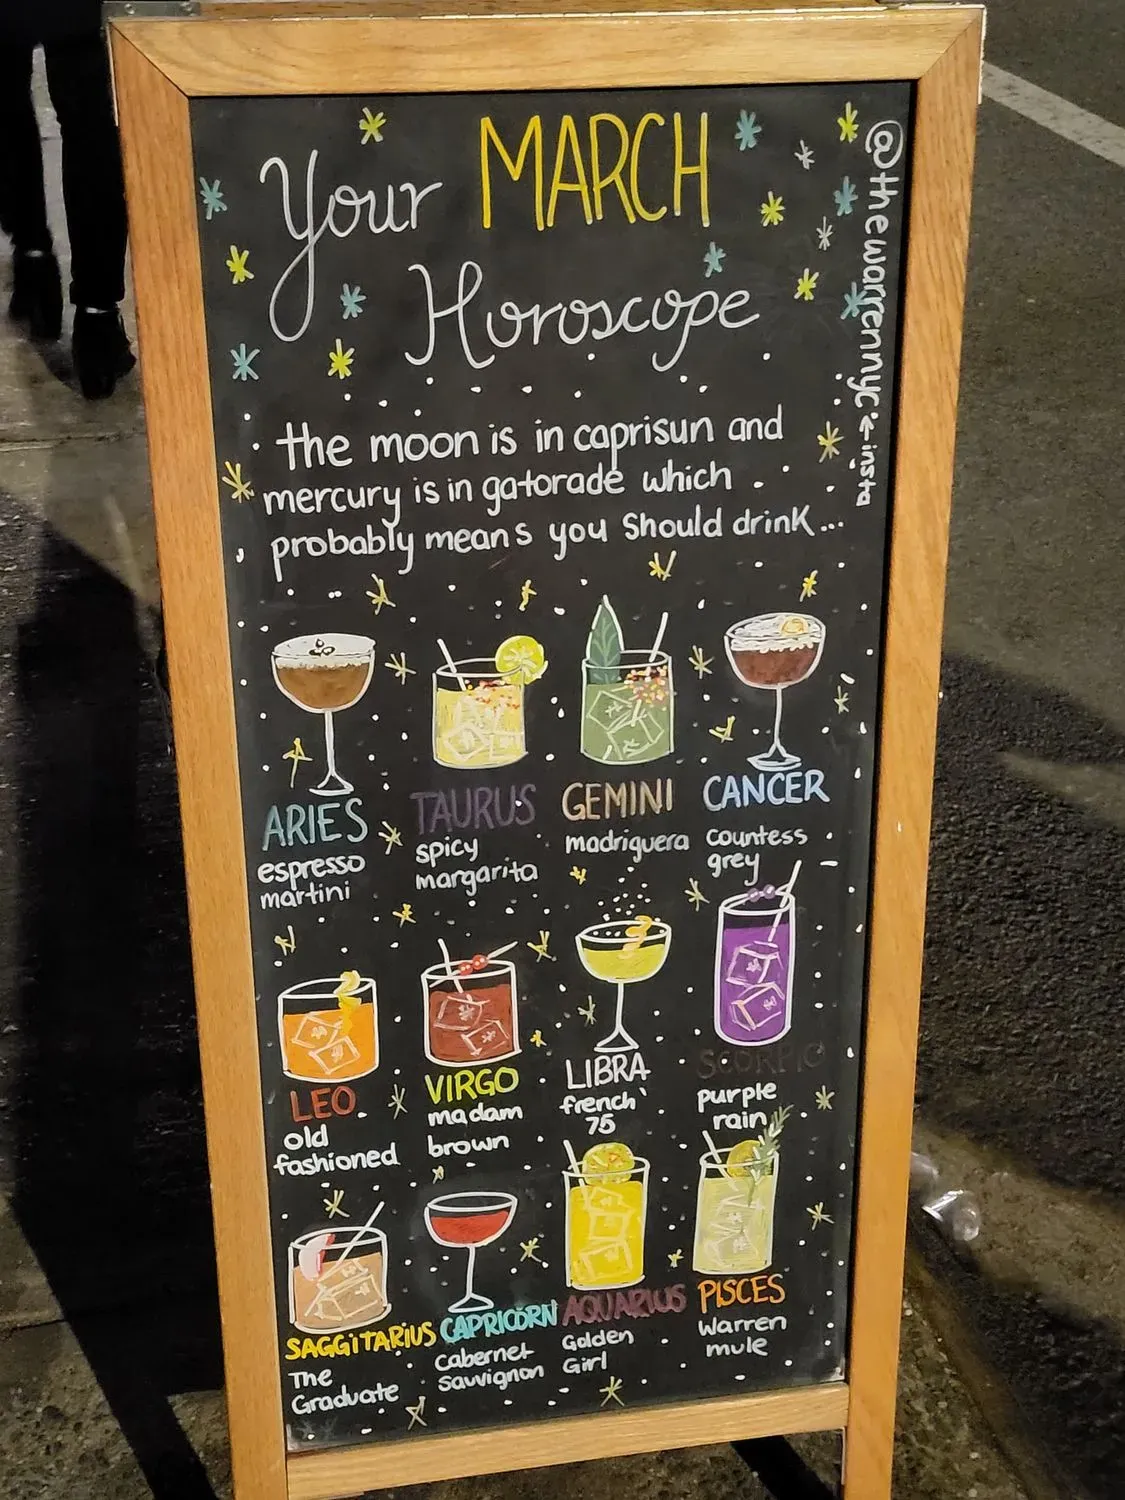 Your MARCH
Horoscope
@thewarrennyc ← insta
the moon is in caprisun and
mercury is in gatorade which
probably means you should drink...
ARIES
espresso
martini
TAURUS
spicy
margarita
GEMINI
madriguera
CANCER
countess
grey
LEO
old
fashioned
VIRGO
madam
brown
LIBRA
french
75
SCORPIO
purple
rain
SAGGITARIUS
The
Graduate
CAPRICORN
Cabernet
Sauvignon
AQUARIUS
Golden
Girl
PISCES
Warren
mule